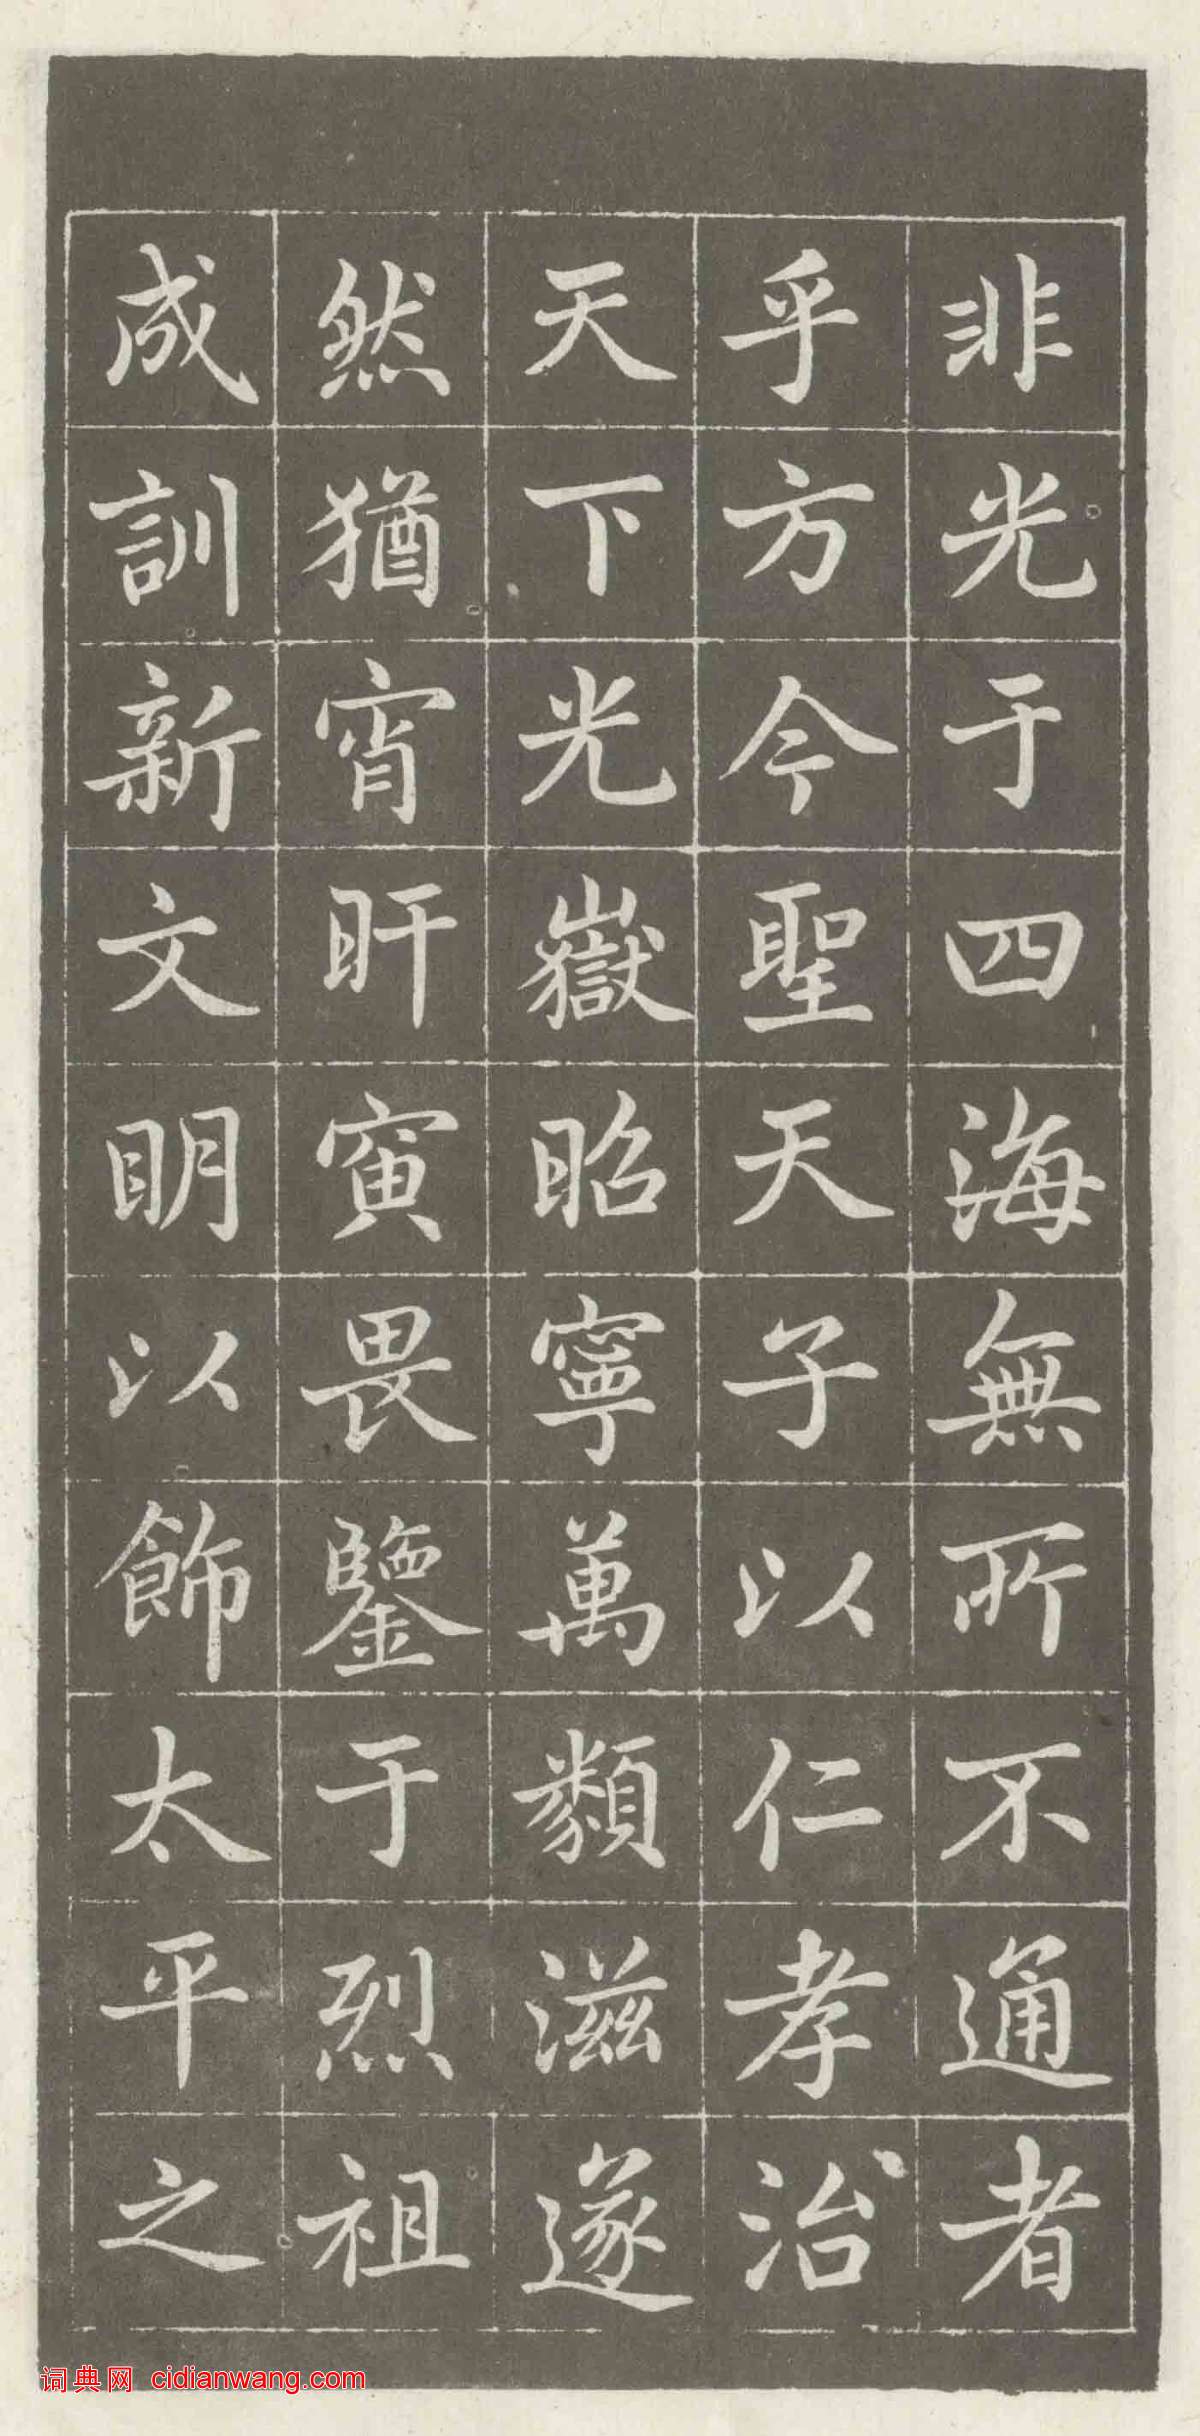 非光于四海無所不通者
乎方今聖天子以仁孝治
天下光嶽昭寧萬類滋遂
然猶宵旰寅畏鑒于烈祖
成訓新文明以飾太平之
词典网 cidianwang.com